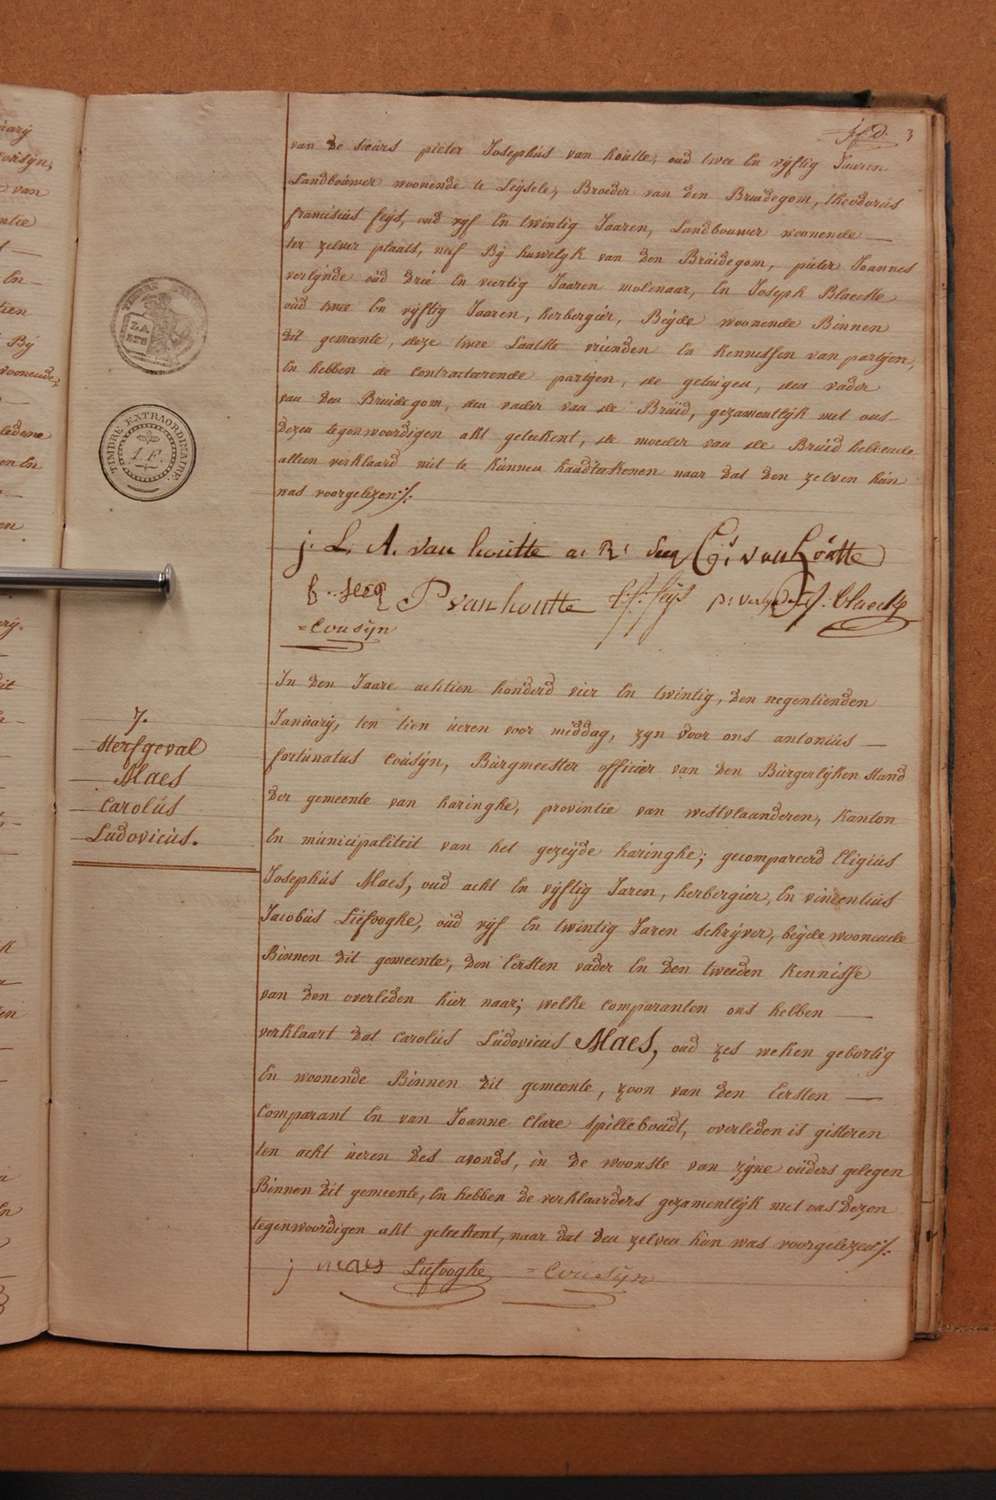 3
van de sieurs pieter Josephus van houtte, oud twee En vyftig Jaaren
Landbouwer woonende te Leysele, Broeder van den Bruidegom, theodorus
franciscus feys, oud vyf En twintig Jaaren, Landbouwer woonende
ter zelver plaats, neef By huwelyk van den Bruidegom, pieter Joannes
verlynde oud drie En veertig Jaaren molenaar, En Joseph Blaeckte
oud twee En vyftig Jaaren, herbergier, Beyde woonende Binnen
dit gemeente, deze twee Laatste vrienden En kennissen van partyen,
En hebben de contracteerende partyen, de getuigen, den vader
van den Bruidegom, den vader van de Bruid, gezamentlyk met ons
dezen tegenwoordigen akt geteekent, de moeder van de Bruid hebbende
alleen verklaard niet te kunnen handteekenen naar dat den zelven hun
was voorgelezen./.
j. L. A. van houtte a: R: C: van houtte
P van houtte f: f: feys blaeckte
=Cousyn
7.
Sterfgeval
Maes
Carolus
Ludovicus.
In den Jaare achtien honderd vier En twintig, den negentienden
January, ten tien ueren voor middag, zyn voor ons antonius
fortunatus Cousyn, Burgmeester officier van den Burgerlyken Stand
der gemeente van haringhe, provintie van westvlaanderen, kanton
En municipaliteit van het gezeyde haringhe; gecompareerd Eligius
Josephus Maes, oud acht En vyftig Jaren, herbergier, En vincentius
Jacobus Liefooghe, oud vyf En twintig Jaren schryver, beyde woonende
Binnen dit gemeente, den Eersten vader En den tweeden kennisse
van den overleden hier naar; welke comparanten ons hebben
verklaart dat Carolus Ludovicus Maes, oud zes weken gebortig
En woonende Binnen dit gemeente, zoon van den Eersten
Comparant En van Joanne Clare spilleboudt, overleden is gisteren
ten acht ueren des avonds, in de woonste van zyne ouders gelegen
Binnen dit gemeente, En hebben de verklaarders gezamentlyk met ons dezen
tegenwoordigen akt geteekent, naar dat den zelven hun was voorgelezen./.
j maes Liefooghe =Cousyn
TIMBRE EXTRAORDINAIRE
1.F.